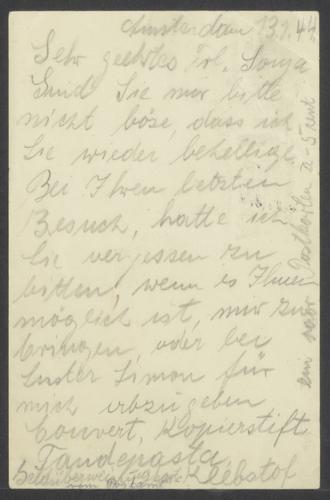 Amsterdam 13.1.44.
Sehr geehrtes Frl. Sonja
Sind Sie mir bitte
nicht böse, dass ich
Sie wieder behellige
Bei Ihren letzten
Besuch, hatte ich
Sie vergessen zu
bitten, wenn es Ihnen
möglich ist, mir zu
bringen, oder bei
Luster Simon für
mich abzugeben
Couvert, Kopierstift
Tandepasta,
Klebstof
vom Postamt
ein paar Postkarten a - 5 cent